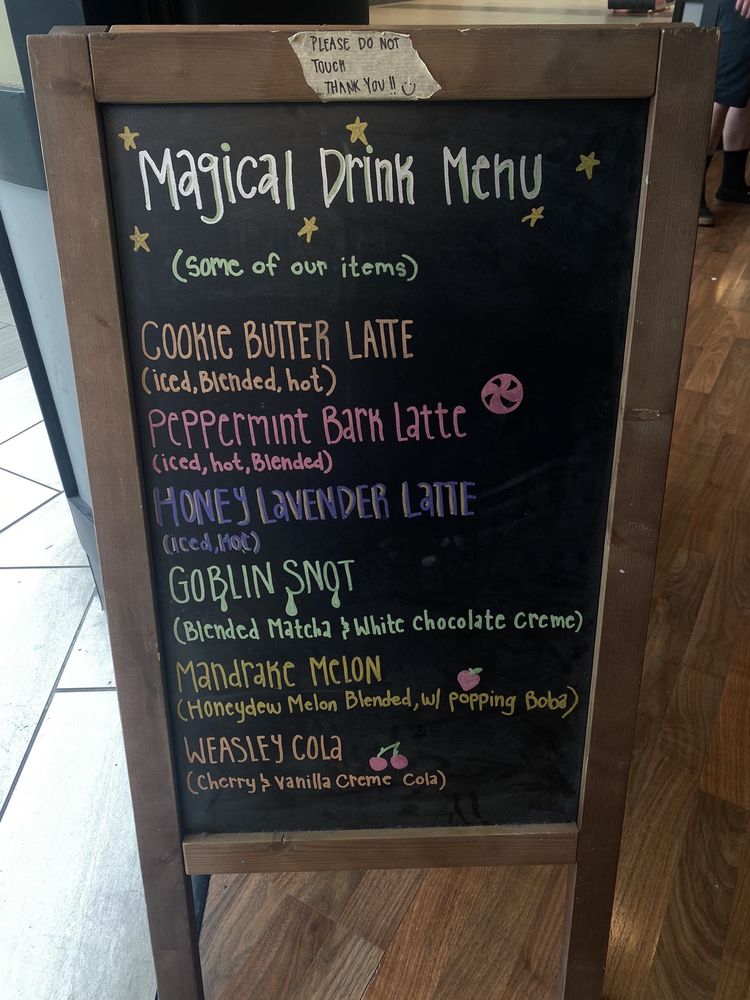 PLEASE DO NOT
TOUCH
THANK YOU !!
Magical Drink Menu
(some of our items)
COOKIE BUTTER LATTE
(iced, Blended, hot)
Peppermint Bark Latte
(iced, hot, Blended)
HONEY LAVENDER LATTE
(iced, Hot)
GOBLIN SNOT
(Blended Matcha & White Chocolate Creme)
MANDRAKE MELON
(Honeydew Melon Blended, w/ popping Boba)
WEASLEY COLA
(Cherry & Vanilla Creme Cola)